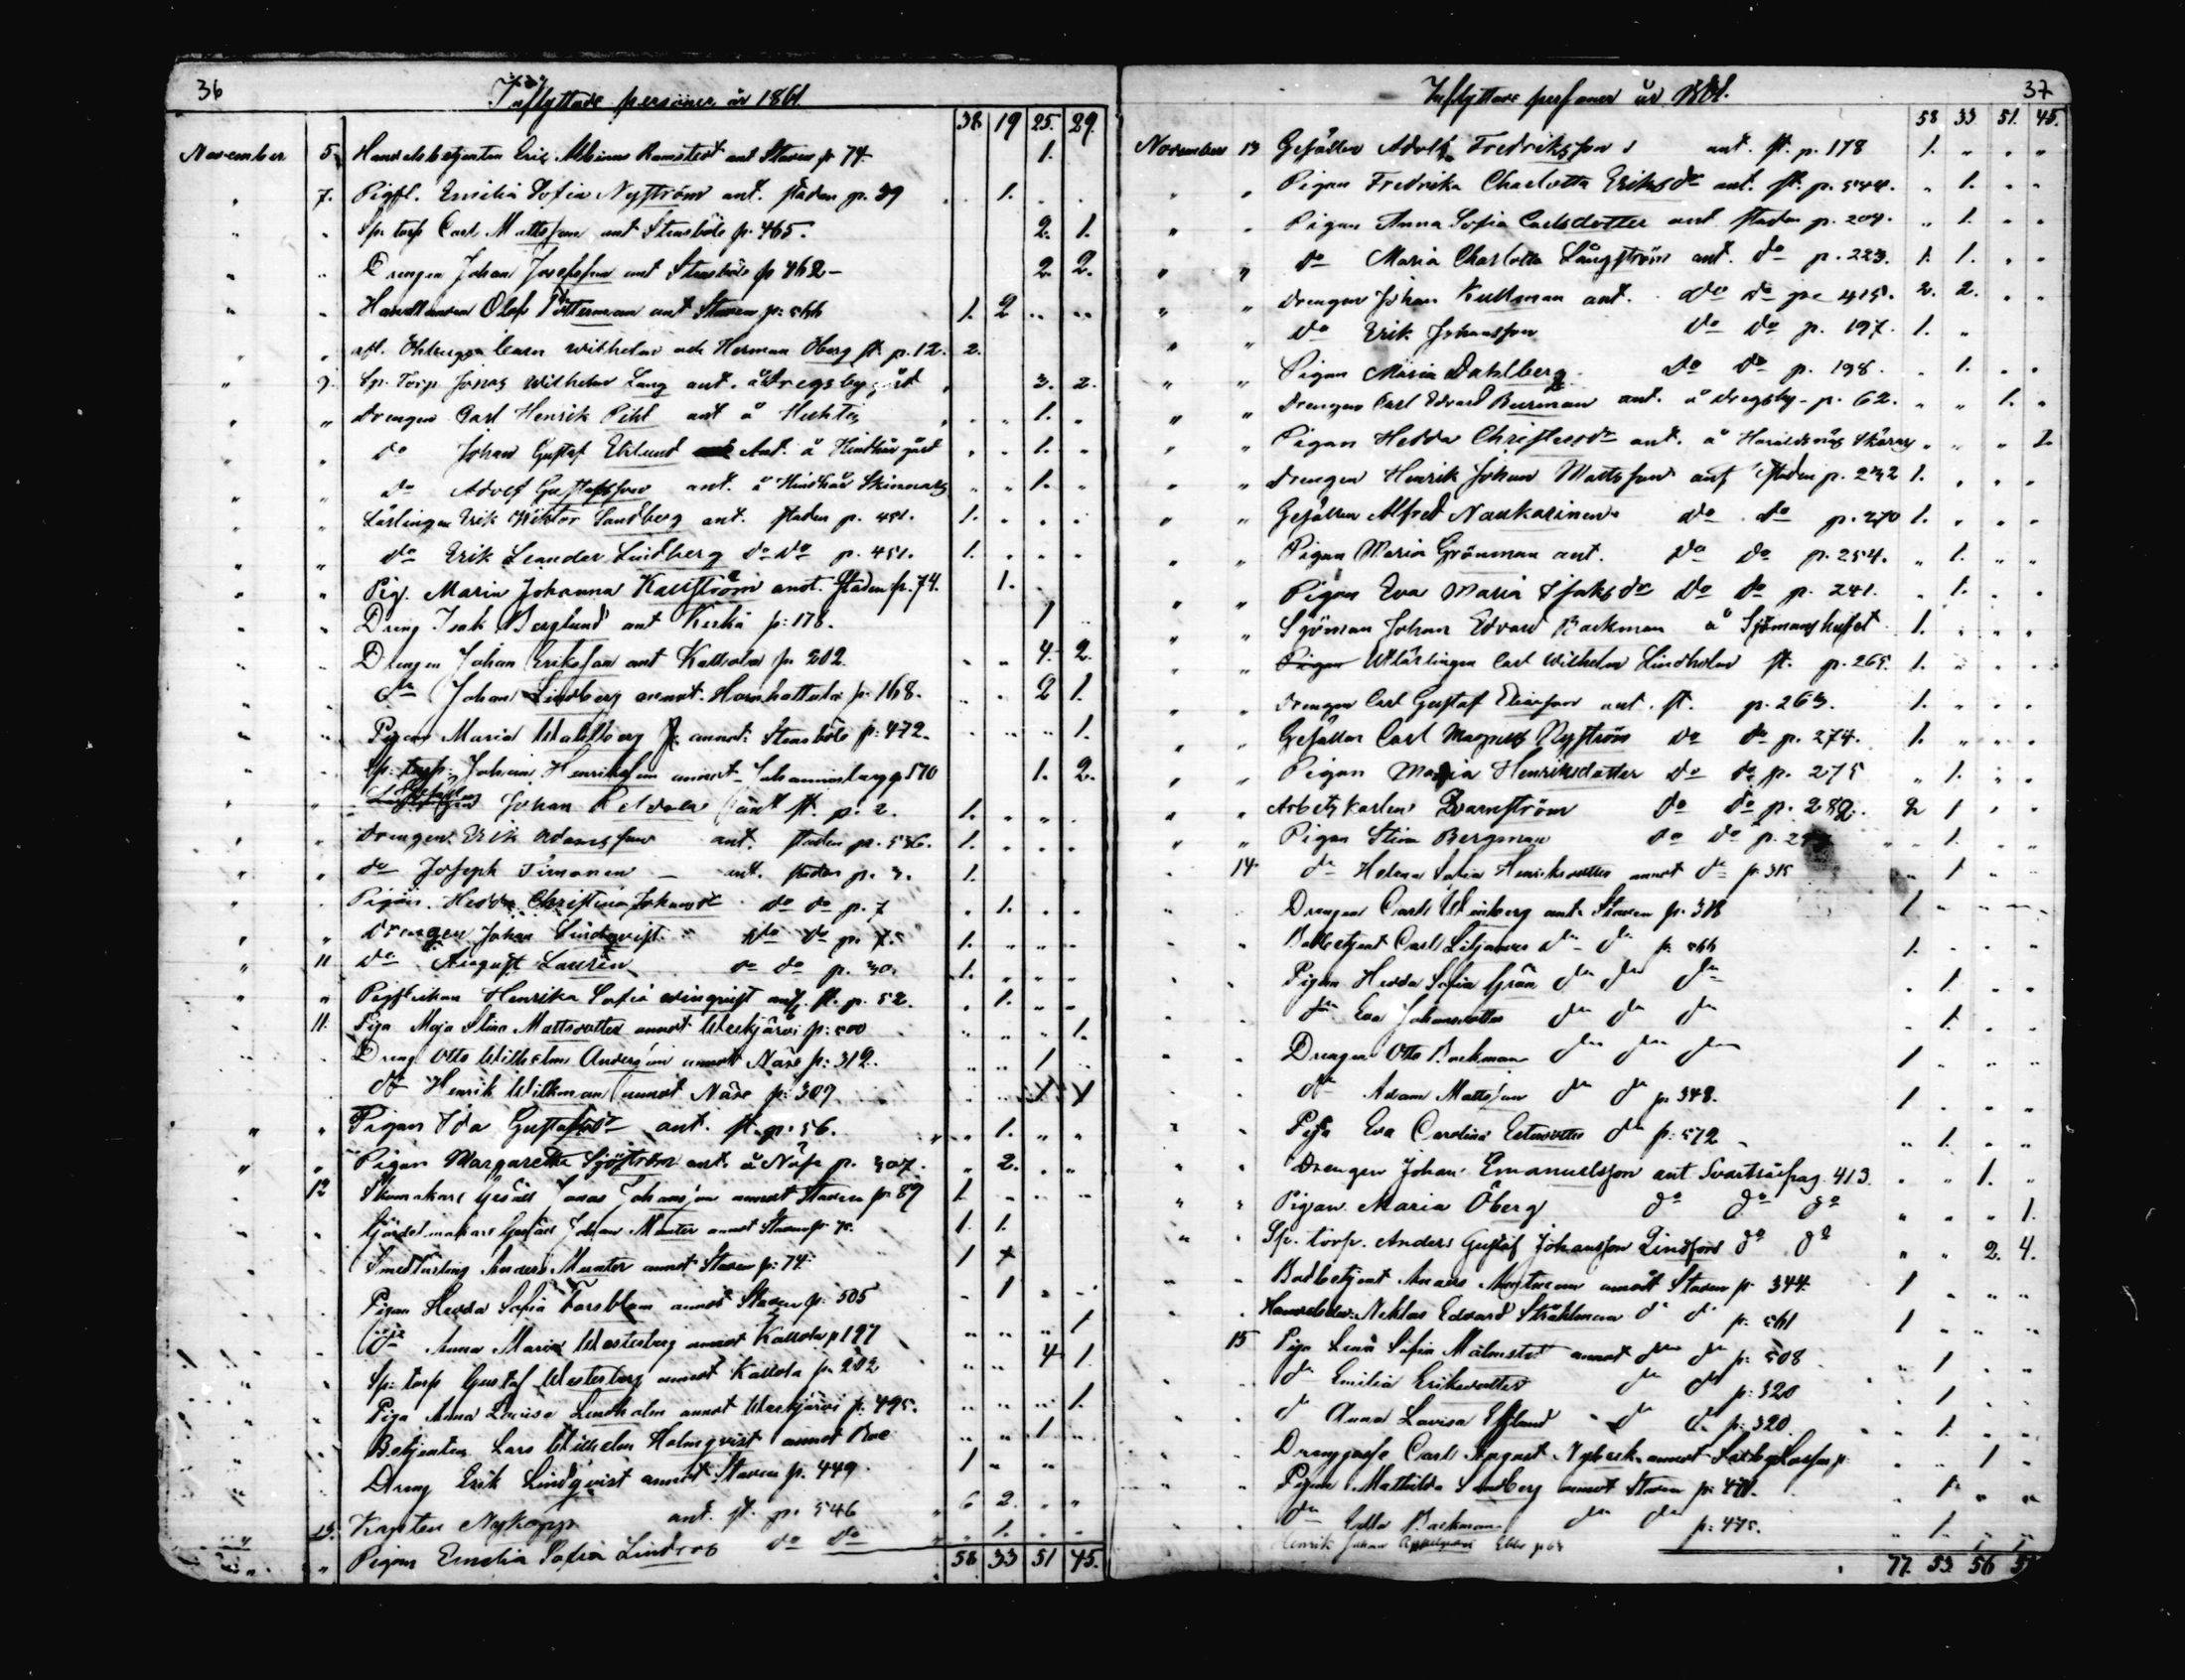 36
Inflyttade personer år 1861.
38 19 25. 29.
November 5. Handelsbetjenten Eric Albinus Ramstedt ant Staden p 74 1.
" 7. Pigfl. Emilia Sofia Nyström ant. staden p. 39 1.
" " Sp. torp Carl Mattsson ant Stensböle p. 465. 2. 1.
" " Drengen Johan Josefsson ant Stensböle p 462 - 2. 2.
" " Handlanden Olof ant Staden p: 566 1. 2
" " Wilhelm och Herman Öberg st. p. 12. 2.
" 9. Sp. Torp Jonas Wilhelm Lang ant. å Dregsby gård 3. 2.
" " Drengen Carl Henrik Pihl ant å 1.
" " do Johan Gustaf Eklund Ant. å Hindhår gård 1.
" " do Adolf Gustafsson ant. å Hindhår Skinnars 1.
" " Lärlingen Erik Wiktor Sandberg ant. staden p. 451. 1.
" " do Erik Leander Lindberg do do p. 451. 1.
" " Pig. Maria Johanna anot. Staden p. 74. 1.
" " Dreng Isak Berglund ant Kerko p: 178. 1
" " Drengen Johan Eriksson ant Kallola p. 202. 4. 2.
" " do Johan Lindberg annot. Hornhattula p: 168. 2 1.
" " Pigan Maria Wahlberg annot: Stensböle p: 472. 1.
" " Sp: torp: Johan Henriksson annot. Johannisberg p 570 1. 2.
" " Johan ant st. p. 2. 1.
" " Drengen Erik Adamsson ant. staden p. 536. 1.
" " do Joseph Timonen - ant. staden p. 3. 1.
" " Pigan Hedda Christina Johansdr do do p. 7 1.
" " Drengen Johan Lindqvist do do p. 7. 1.
" 11 do August Laurén do do p. 30. 1.
" " Henrika Sofia Winqvist ant. st. p. 52. 1.
" 11. Piga Maja Stina Mattsdotter annot Weckjärvi p: 500 1.
" " Dreng Otto Wilhelm Andersson annot Näse p: 312. 1
" " do Henrik Wilkman annot Näse p: 307
" " Pigan Ida Gustafsdr ant. st. p: 56. 1.
" " Pigan Margaretha Sjöström ant. å Näse p. 307. 2.
" 12 Skomakare Gesäll Jonas Johansson annot Staden p: 89 1
" " Gördelmakare Gesäll Johan Munter annot Staden p 75. 1. 1.
" " Smedlärling Anders Munter annot Staden p: 74. 1
" " Pigan Hedda Sofia Forsblom annot Staden p: 505 1
" " do Anna Maria Westerberg annot Kallola p 197 1
" " Sp: torp Gustaf Westerberg annot Kallola p. 202 4 1.
" " Piga Anna Lovisa Lindholm annot Weckjärvi p: 495. 1.
" " Betjenten Lars Wilhelm Holmqvist annot Boe 1
" " Dreng Erik Lindqvist annot Staden p. 449. 1
" " Karsten Nykopp ant. st. p: 546 6 2.
" 13. Pigan Emelia Sofia Lindros do do 1.
58 33 51 45.
37
Inflyttade personer år 1861.
58 33 51. 45.
November 13 Gesällen Adolf Fredriksson ant. st. p. 178 1.
" " Pigan Fredrika Charlotta Eriksdr ant. st. p. 544. 1.
" " Pigan Anna Sofia Carlsdotter ant staden p. 204. 1.
" " do Maria Charlotta Långström ant. do p. 223. 1. 1.
" " Drengen Johan Kullman ant. do do p. 415. 2. 2.
" " do Erik Johansson do do p. 197. 1.
" " Pigan Maria Dahlberg. do do p. 198. 1.
" " Drengen Carl Edvard Burman ant. å Dregsby p. 62. 1.
" " Pigan Hedda Christersdr ant. å Haraldsnäs Skärns 1.
" " Drengen Henrik Johan Mattsson ant Staden p. 232 1.
" " Gesällen Alfred Naukarinen do do p. 270 1.
" " Pigan Maria Grönman ant. do do p. 254. 1.
" " Pigan Eva Maria Isaksdr do do p. 241. 1.
" " Sjöman Johan Edvard Backman å Sjömanshuset 1.
" " Utlärlingen Carl Wilhelm Lindholm st. p. 265. 1.
" " Drengen Carl Gustaf Eliasson ant. st. p. 263. 1.
" " Gesällen Carl Magnus Nyström do do p. 274. 1.
" " Pigan Maria Henriksdotter do do p. 275 1.
" " Arbetskarlen Qvarnström do do p. 282. 2 1
" " Pigan Stina Bergman do do p. 1.
" 14. do Helena Sofia Henriksdotter annot do p. 315 1
" " Drengen Carl Weinberg ant. Staden p: 318 1
" " Bokbetjent Carl Liljander do do p: 566 1.
" " Pigan Hedda Sofia Grän do do do 1.
" " do Eva Johansdotter do do do 1.
" " Drengen Otto Backman do do do 1
" " do Adam Mattsson do do p. 348. 1
" " Piga Eva Carolina do p: 572 1.
" " Drengen Johan Emanuelsson ant Svarträsk pag. 413. 1.
" " Pigan Maria Öberg do do do 1.
" " Sp. torp. Anders Gustaf Johansson Lindfors do do 2. 4.
" " Bodbetjent Anders annot Staden p: 344. 1
" " Niklas Edvard Stråhlman do do p: 561 1
" 15 Piga Lena Sofia Malmstedt annot do do p: 508 1
" " do Emilia Eriksdotter do do p: 320 1
" " do Anna Lovisa do do p: 320. 1.
" " Drenggosse Carl August annot 1
" " Pigan Mathilda Sandberg annot Staden p: 471. 1.
" " do Ulla Backman do do p: 475. 1.
Henrik Johan Ebbo p 63
77. 53. 56